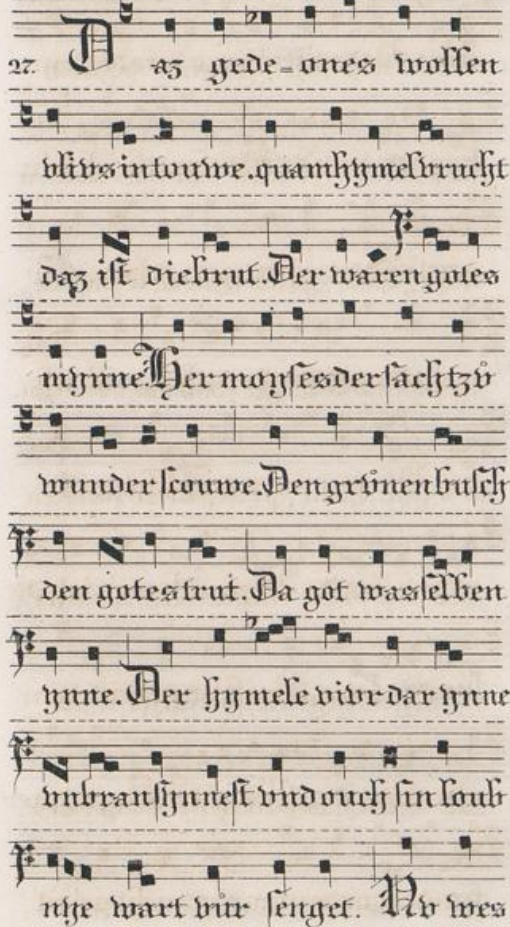 27. Daz gede=ones wollen
vlivs in touwe. quam hymelvrucht
daz ist die brut. Der waren gotes
mynne. Her moyses der sach tzů
wunder scouwe. Den grůnen busch
den gotes trut. Da got was selben
ynne. Der hymele vivr dar ynne
vnbran synnest vnd ouch sin loub
nye wart vůr senget. Nv wes